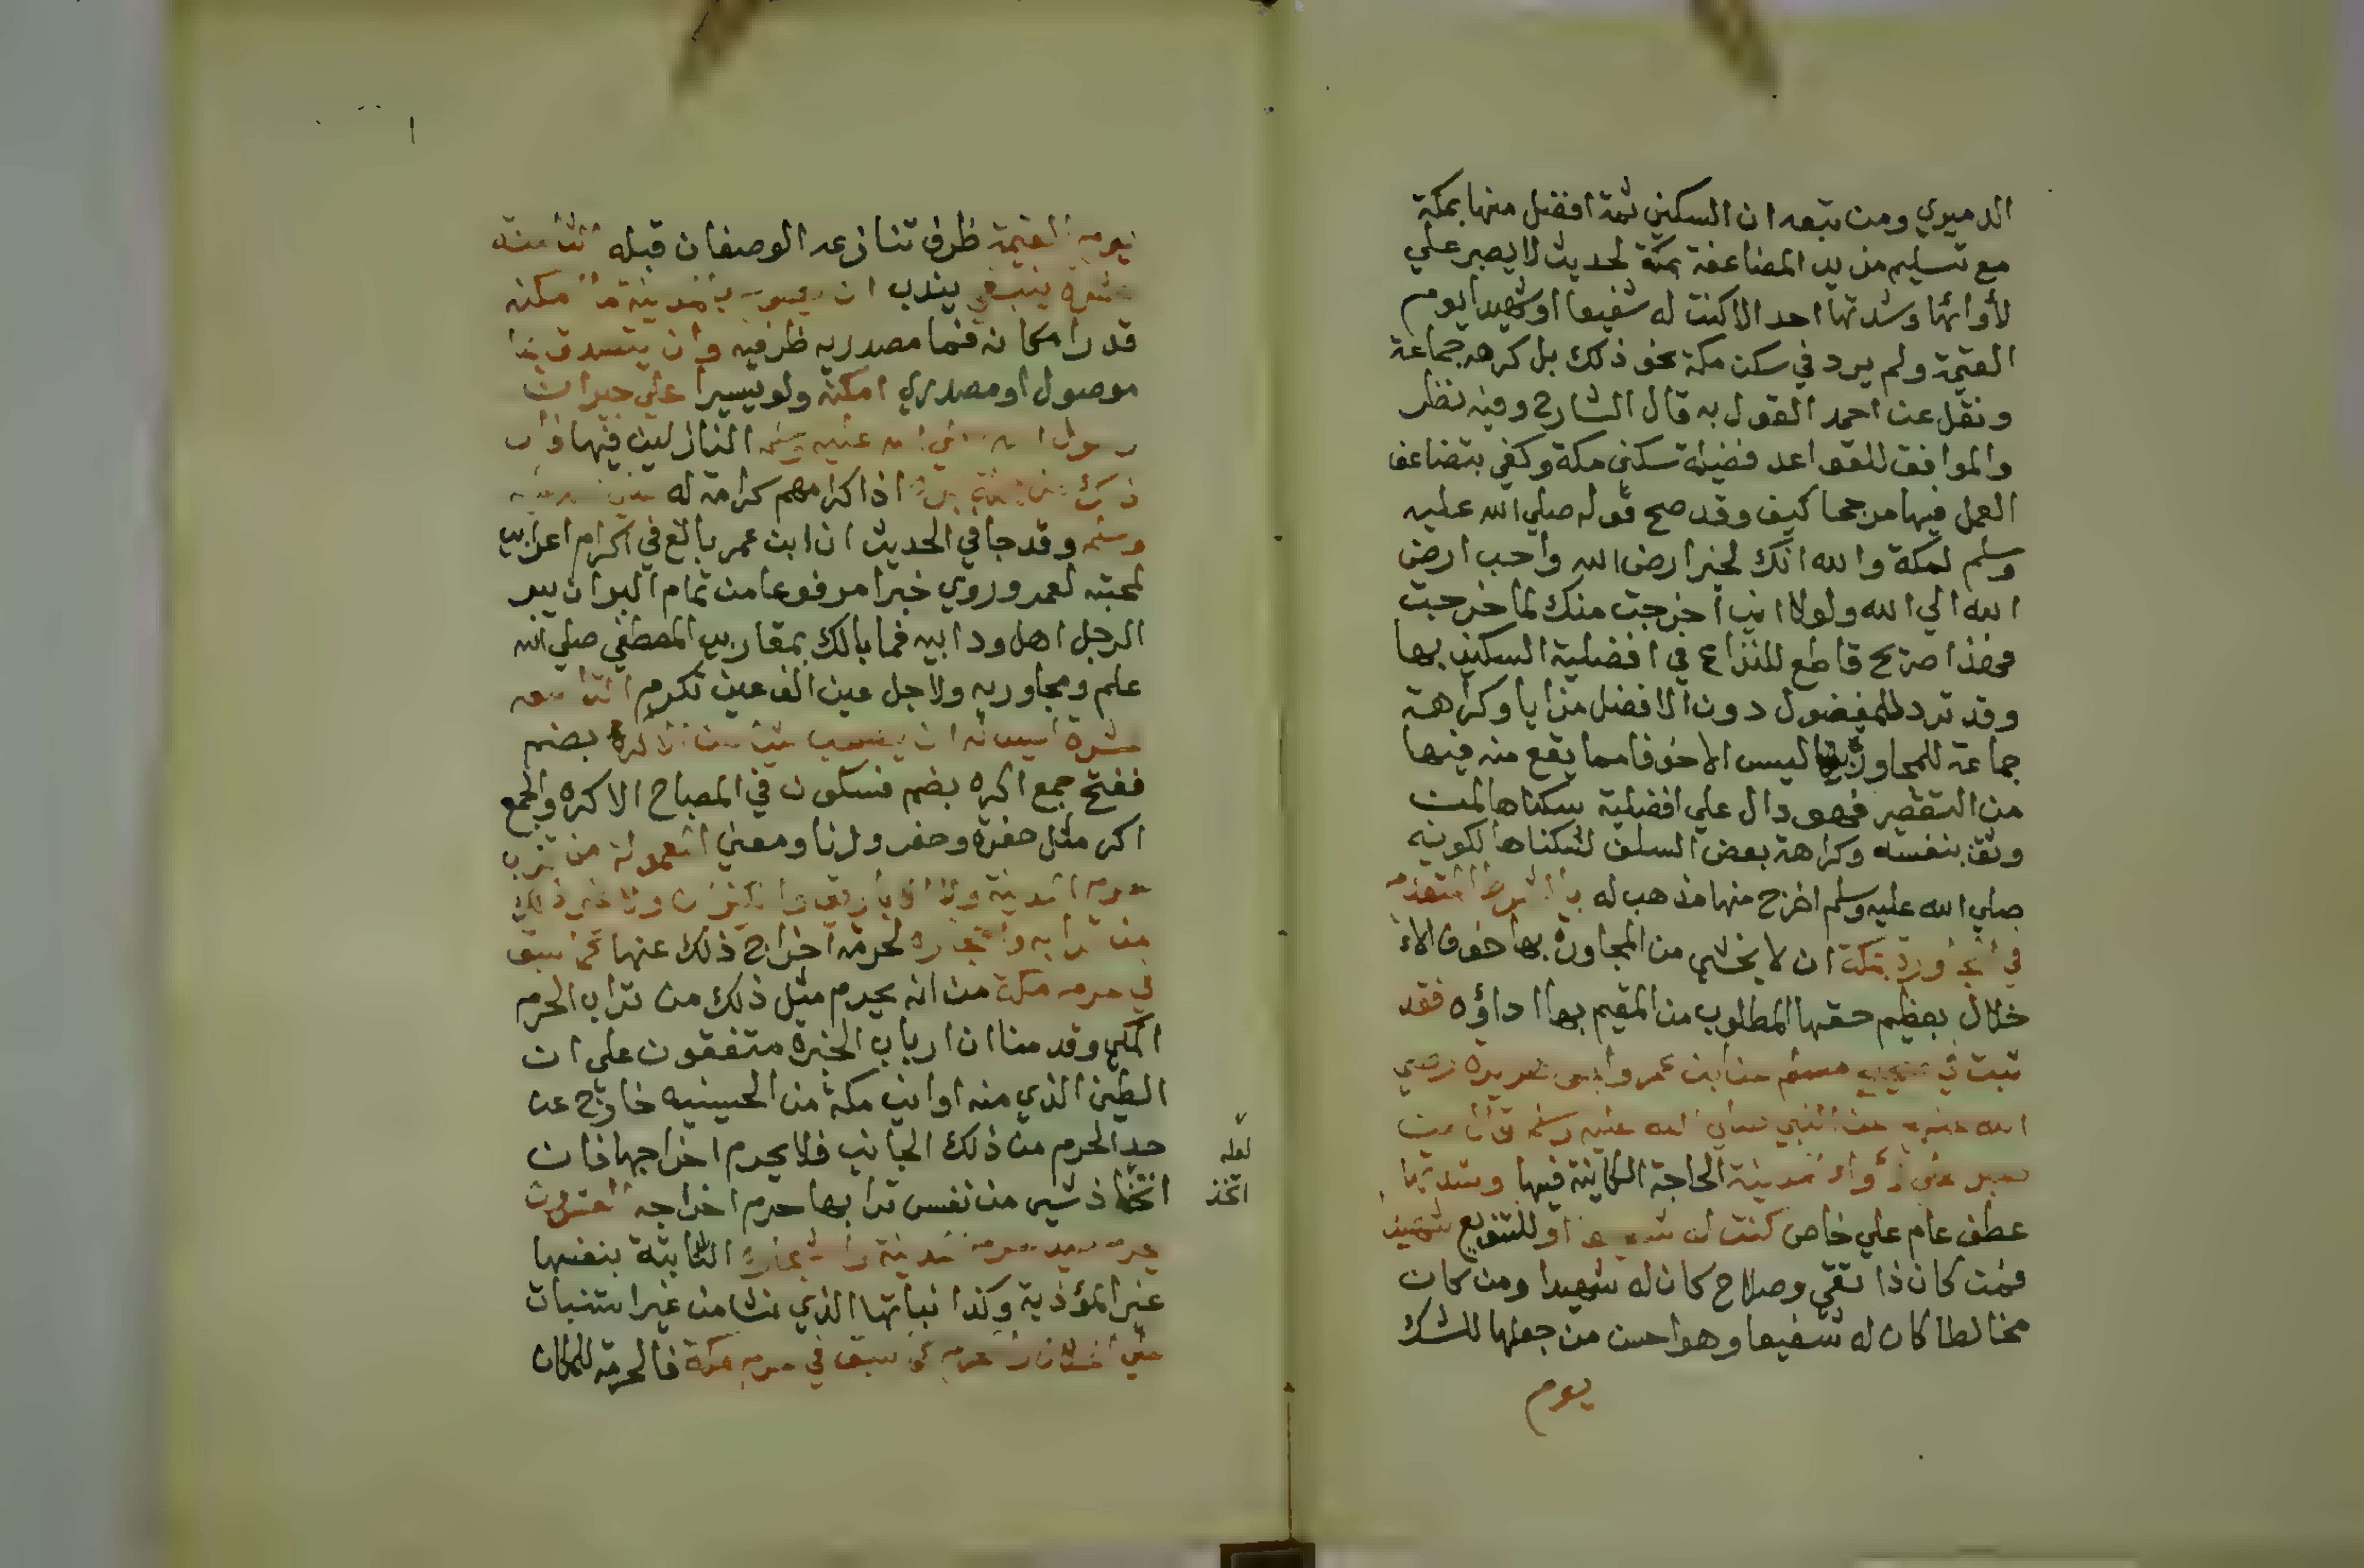 الدميري ومن تبعه ان السكني ثمة افضل منها بمكة
مع تسليم مزيد المضاعفة بمكة لحديث لا يصبر علي
لأوائها وشدتها احد الا كنت له شفيعا او شهيدا يوم
القيمة ولم يرد في سكن مكة نحو ذلك بل كرهه جماعة
ونقل عن احمد القول به قال الشارح وفيه نظر
والموافق للقواعد فضيلة سكني مكة وكفي بتضاعف
العمل فيها مرجحا كيف وقد صح قوله صلي الله عليه
وسلم لمكة والله انك لخير ارض الله واحب ارض
الله الي الله ولولا اني اخرجت منك لما خرجت
فهذا صريح قاطع للنزاع في افضلية السكني بها
وقد ترد للمفضول دون الافضل مزايا وكراهة
جماعة للمجاورة بها ليس الا خوفا مما يقع منه فيها
من التقصير فهو دال علي افضلية سكناها لمن
وثق بنفسه وكراهة بعض السلف لسكناها لكونه
صلي الله عليه وسلم اخرج منها مذهب له بالشرط المتقدم
في المجاورة بمكة ان لا يخشي من المجاورة بها خوف الا
خلال بعظيم حقها المطلوب من المقيم بها اداؤه فقد
ثبت في صحيح مسلم عن ابن عمر وابي هريرة رضي
الله عنهم عن النبي صلي الله عليه وسلم قال من
صبر علي لأواء المدينة الحاجة الكاينة فيها وشدتها
عطف عام علي خاص كنت له شفيعا او للتنويع شهيدا
فمن كان ذا تقي وصلاح كان له شهيدا ومن كان
مخالطا كان له شفيعا وهو احسن من جعلها للشك
يوم
يوم القيمة ظرف تنازعه الوصفان قبله الثامنة
عشرة ينبغي يندب ان يصوم بالمدينة ما امكنه
قدر امكانه فما مصدريه ظرفيه وان يتصدق بما
موصول او مصدري امكنه ولو يسيرا علي جيران
رسول الله صلي الله عليه وسلم النازلين فيها فان
ذلك من جملة بره اذ اكرامهم كرامة له صلي الله عليه
وسلم وقد جا في الحديث ان ابن عمر بالغ في اكرام اعرابي
لمحبته لعمر وروي خبرا مرفوعا من تمام البر ان يبر
الرجل اهل ود ابيه فما بالك بمقاربي المصطفي صلي الله
علم ومجاوريه ولاجل عين الف عين تكرم التاسعة
عشرة ليس له ان يستصحب شيا من الاكره بضم
ففتح جمع اكره بضم فسكون في المصباح الاكره والجمع
اكر مثل حفرة وحفر وزنا ومعني المعمولة من تراب
حرم المدينة ولا الاباريق والكيزان ولا غير ذلك
من ترابه واحجاره لحرمة اخراج ذلك عنها كما سبق
في حرم مكة من انه يحرم مثل ذلك من تراب الحرم
المكي وقدمنا ان ارباب الخبرة متفقون علي ان
الطين الذي منه اواني مكة من الحسينيه خارج عن
حد الحرم من ذلك الجانب فلا يحرم اخراجها فان
اتخاذ شي من نفس ترابها حرم اخراجه العشرون
يحرم صيد حرم المدينة واشجاره النابتة بنفسها
غير المؤذية وكذا نباتها الذي نشا من غير استنبات
علي الحلال والمحرم كما سبق في حرم مكة فالحرمة للمكان
لعله
اتخذ